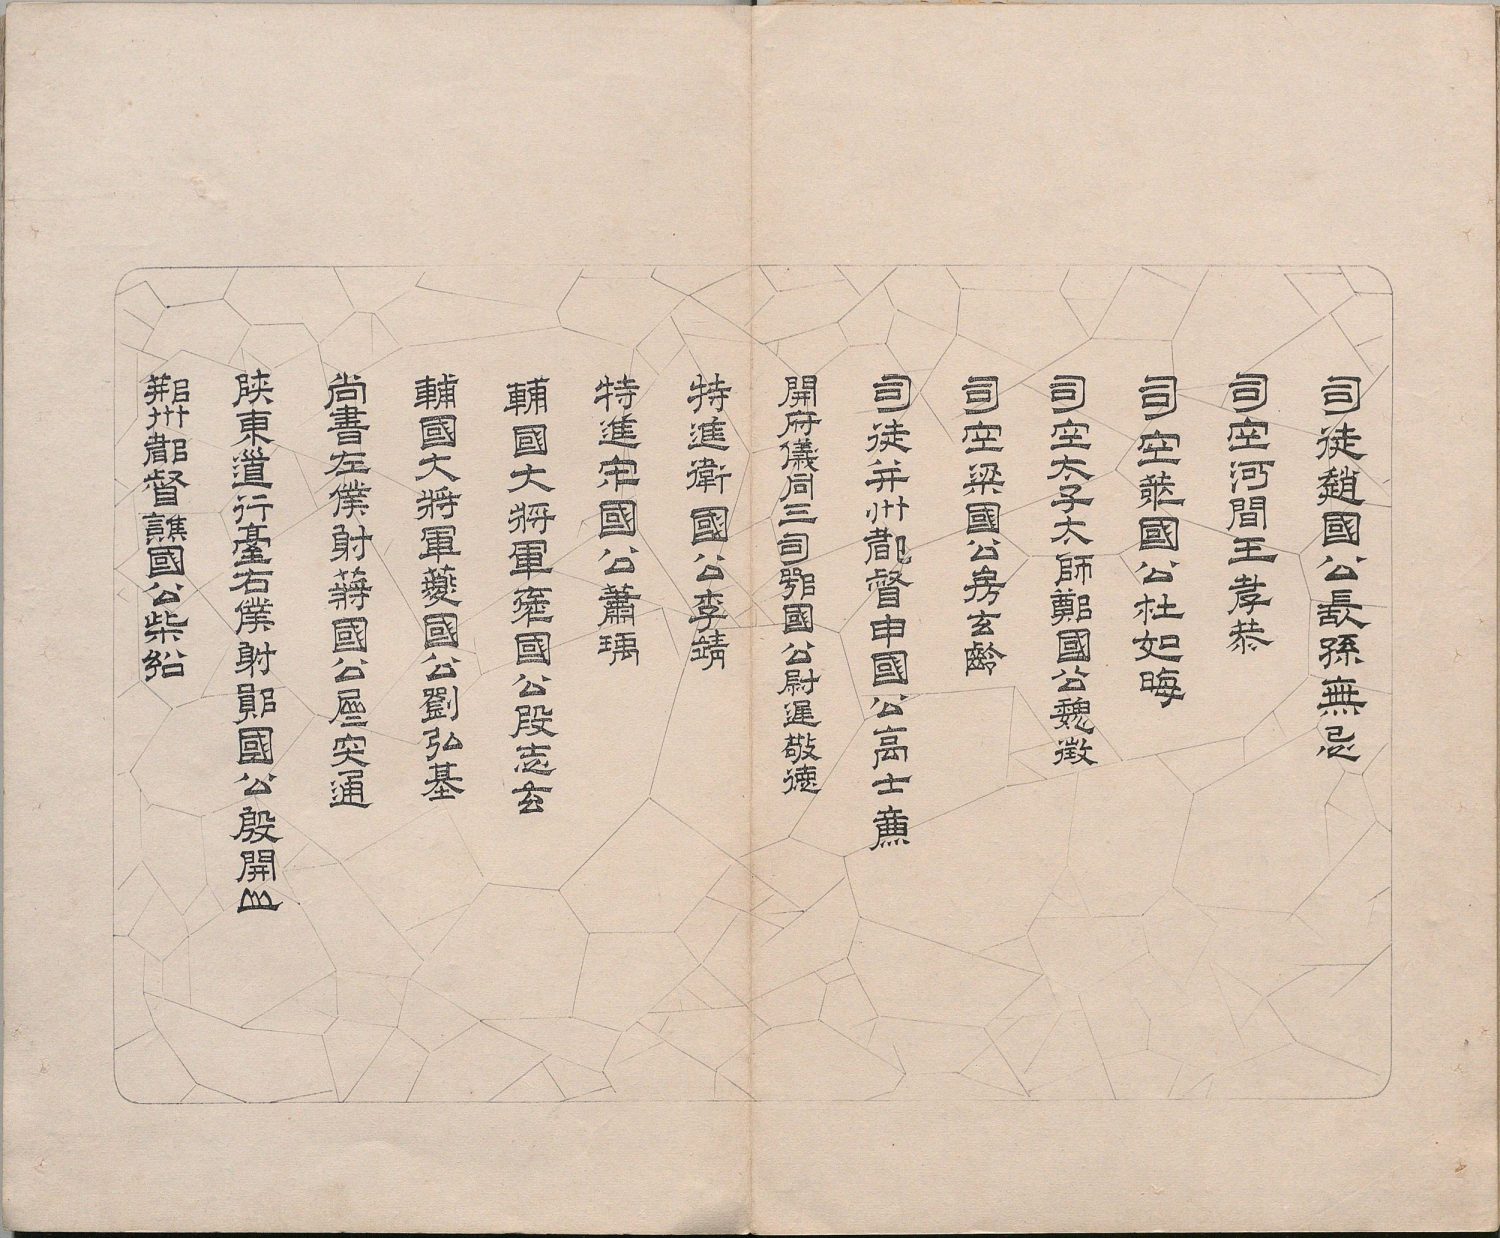 司徒趙國公長孫無忌
司空河間王孝恭
司空萊國公杜如晦
司空太子太師鄭國公魏徵
司空梁國公房玄齡
司徒并州都督申國公高士廉
開府儀同三司鄂國公尉遲敬德
特進衛國公李靖
特進宋國公蕭瑀
輔國大將軍褒國公段志玄
輔國大將軍夔國公劉弘基
尚書左僕射蔣國公屈突通
陝東道行臺右僕射鄖國公殷開山
荊州都督譙國公柴紹